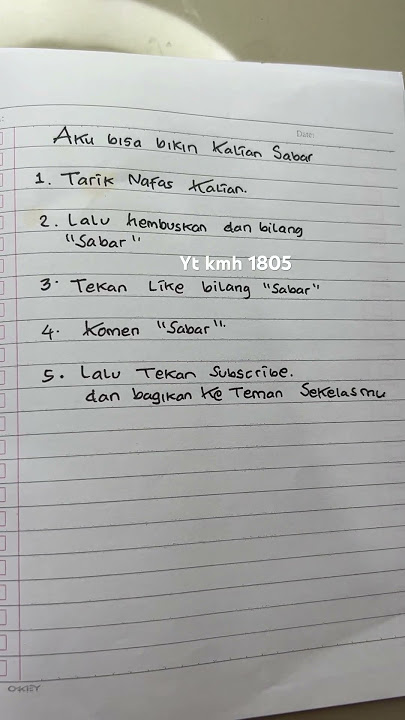 Date:
Aku bisa bikin Kalian Sabar
1. Tarik Nafas Kalian.
2. Lalu hembuskan dan bilang
"Sabar"
Yt kmh 1805
3. Tekan Like bilang "Sabar"
4. Komen "Sabar".
5. Lalu Tekan Subscribe.
dan bagikan ke Teman Sekelasmu
OKEY